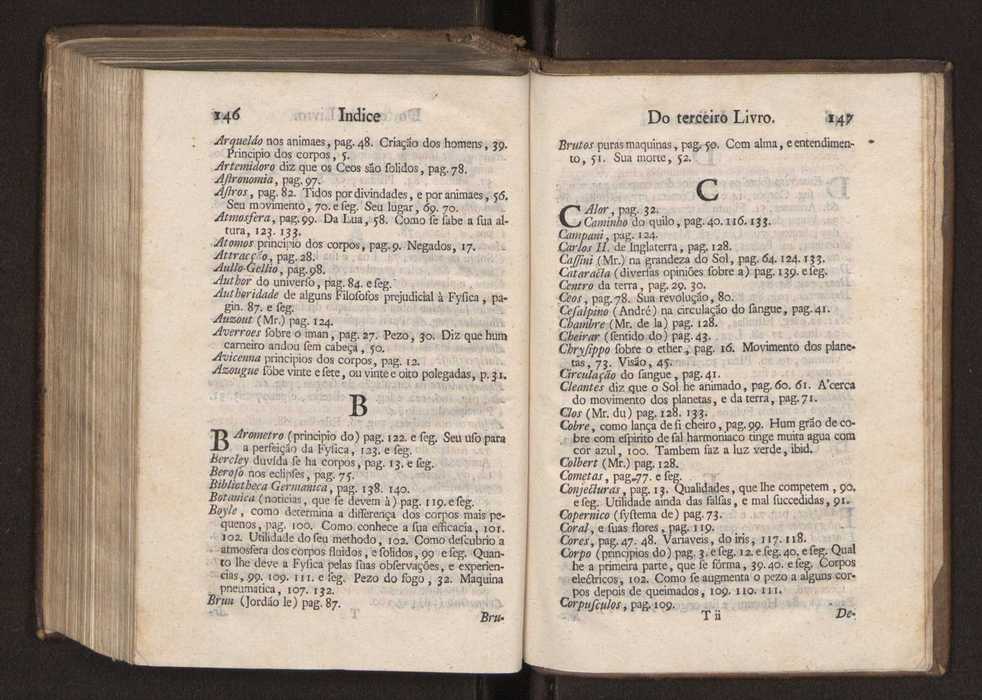 146 Indice
Arqueláo nos animaes, pag. 48. Criação dos homens, 39.
Principio dos corpos, 5.
Artemidoro diz que os Ceos são solidos, pag. 78.
Astronomia, pag. 97.
Astros, pag. 82. Tidos por divindades, e por animaes, 56.
Seu movimento, 70. e seg. Seu lugar, 69. 70.
Atmosfera, pag. 99. Da Lua, 58. Como se sabe a sua al-
tura, 123. 133.
Atomos principio dos corpos, pag. 9. Negados, 17.
Attracção, pag. 28.
Aullo-Gellio, pag. 98.
Author do universo, pag. 84. e seg.
Authoridade de alguns Filosofos prejudicial à Fysica, pa-
gin. 87. e seg.
Auzout (Mr.) pag. 124.
Averroes sobre o iman, pag. 27. Pezo, 30. Diz que hum
carneiro andou sem cabeça, 50.
Avicenna principios dos corpos, pag. 12.
Azougue sóbe vinte e sete, ou vinte e oito polegadas, p. 31.
B
BArometro (principio do) pag. 122. e seg. Seu uso para
a perfeição da Fysica, 123. e seg.
Bercley duvída se ha corpos, pag. 13. e seg.
Beroso nos eclipses, pag. 75.
Bibliotheca Germanica, pag. 138. 140.
Botanica (noticias, que se devem à) pag. 119. e seg.
Boyle, como determina a differença dos corpos mais pe-
quenos, pag. 100. Como conhece a sua efficacia, 101.
102. Utilidade do seu methodo, 102. Como descubrio a
atmosfera dos corpos fluidos, e solidos, 99 e seg. Quan-
to lhe deve a Fysica pelas suas observações, e experien-
cias, 99. 109. 111. e seg. Pezo do fogo, 32. Maquina
pneumatica, 107. 132.
Brun (Jordão le) pag. 87.
Bru-
Do terceiro Livro. 147
Brutos puras maquinas, pag. 50. Com alma, e entendimen-
to, 51. Sua morte, 52.
C
CAlor, pag. 32.
Caminho do quilo, pag. 40. 116. 133.
Campani, pag. 124.
Carlos II. de Inglaterra, pag. 128.
Cassini (Mr.) na grandeza do Sol, pag. 64. 124. 133.
Cataracta (diversas opiniões sobre a) pag. 139. e seg.
Centro da terra, pag. 29. 30.
Ceos, pag. 78. Sua revolução, 80.
Cesalpino (André) na circulação do sangue, pag. 41.
Chambre (Mr. de la) pag. 128.
Cheirar (sentido do) pag. 43.
Chrysippo sobre o ether, pag. 16. Movimento dos plane-
tas, 73. Visão, 45.
Circulação do sangue, pag. 41.
Cleantes diz que o Sol he animado, pag. 60. 61. A'cerca
do movimento dos planetas, e da terra, pag. 71.
Clos (Mr. du) pag. 128. 133.
Cobre, como lança de si cheiro, pag. 99. Hum grão de co-
bre com espirito de sal harmoniaco tinge muita agua com
cor azul, 100. Tambem faz a luz verde, ibid.
Colbert (Mr.) pag. 128.
Cometas, pag. 77. e seg.
Conjecturas, pag. 13. Qualidades, que lhe competem, 90.
e seg. Utilidade ainda das falsas, e mal succedidas, 91.
Copernico (systema de) pag. 73.
Coral, e suas flores, pag. 119.
Cores, pag. 47. 48. Variaveis, do iris, 117. 118.
Corpo (principios do) pag. 3. e seg. 12. e seg. 40. e seg. Qual
he a primeira parte, que se fórma, 39. 40. e seg. Corpos
electricos, 102. Como se augmenta o pezo a alguns cor-
pos depois de queimados, 109. 110. 111.
Corpusculos, pag. 109.
T ii De-